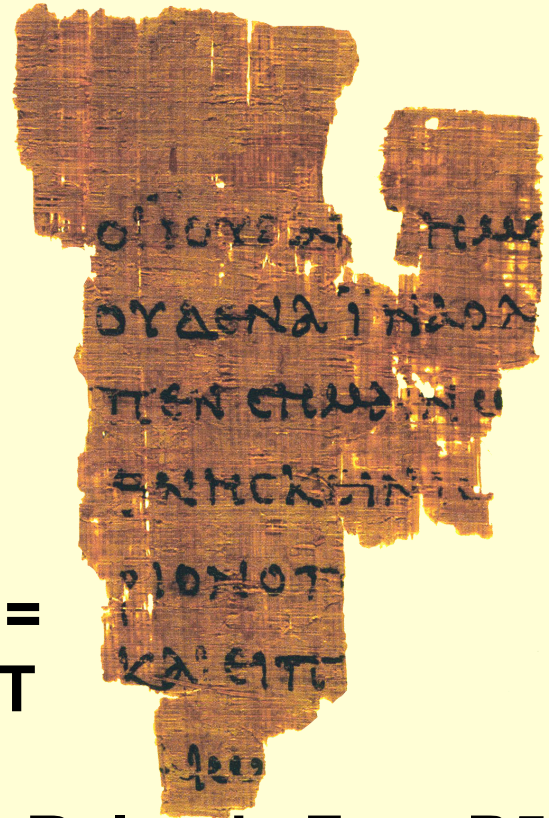 ΟΙ ΙΟΥΔΑΙ ΗΜΕ
ΟΥΔΕΝΑ ΪΝΑ Ο Λ
ΠΕΝ CΗΜΑΙΝΩ
ΘΝΗCΚΕΙΝ ΙC
ΡΙΟΝ Ο Π
=
ΚΑΙ ΕΙΠ
T